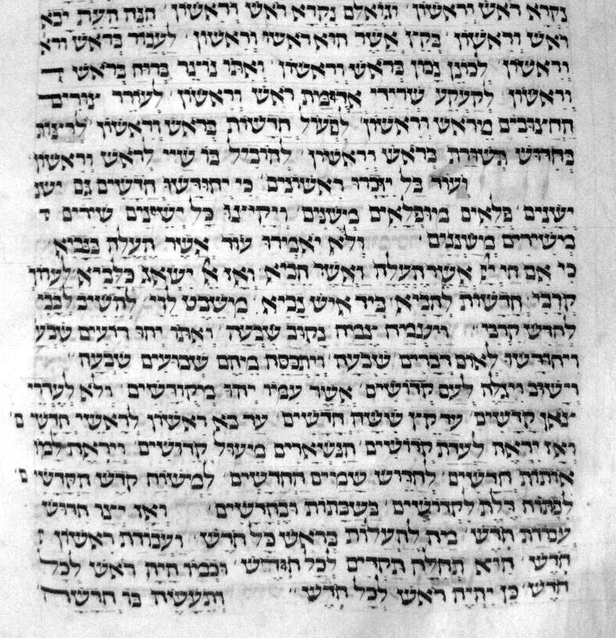 נקרא ראש וראשון וגואלם נקרא ראש וראשון הנה העת יבא
ראש וראשון בקץ אשר הוא ראשי וראשון לעמוד בראש ורא
וראשון למנן נמן בראש וראשון ואתו נוצר ברוח בראש
וראשון לקעקע שרירי אדמת ראש וראשון לעורר צורים
החצובים מראש וראשון לפעול חדשות בראש וראשון
בחודש תשורת בראש וראשון להוביל בו שיי לראש וראשון
ועוד בל יזכרו ראשונים כי יחודשו חדשים גם ישנ
ישנים פלאים מופלאים משנים ויקוננו כל ישישים שירים
משירים משוננים ולא יאמרו עוד אשר העלה בנביא
כי אם חי יי אשר העלה ואשר הביא ואז א ישאג כלביא לעורר
קרבי חדשות להביא ביד איש נביא משבט לוי להשיב לבבי
לחדש קרבי ויעמיד צמח נקוב שבעה ואתו יהו רועים שבע
ויחודשו לאום דברים שבעה ויתבסה מיהם שמועים שבעה
ישוב ויגלה לעם קדושים אשר עמו יהו מיקודשים ולא לעדי
צאן קדשים עד קץ ששה חדשים עד בא ראשון לראשי חדשים
ואז יראה לעדת קדושים הנשארים מיעול קדושים ויראה למו
אותות חדשים לחדוש שמים החדשים למישוח קדש הקדשים
לפתוח דלת לקדושים בשבתות ובחדשים ואז יינו חדוש
עבודת חדש מיה להעלות בראש כל חדש ועבודת ראשון
חדש הוא תחלה תקדים לכל חודש וכמו היה ראש לכל
חדש כן יהיה ראש לכל חדש ותעשה בו חדשה